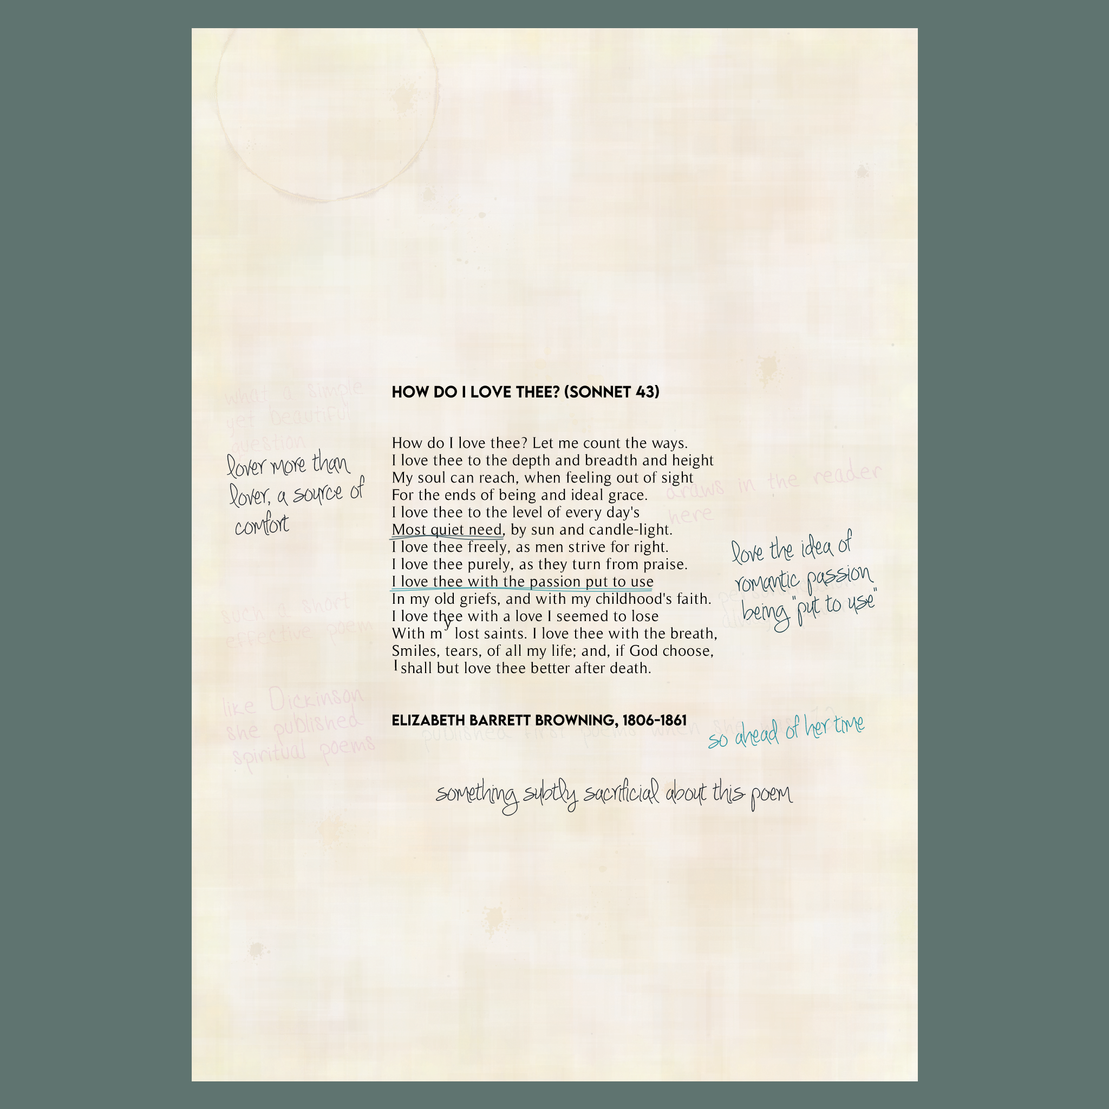 HOW DO I LOVE THEE? (SONNET 43)
what a simple
yet beautiful
question
lover more than
lover, a source of
comfort
How do I love thee? Let me count the ways.
I love thee to the depth and breadth and height
My soul can reach, when feeling out of sight
For the ends of being and ideal grace.
I love thee to the level of every day's
Most quiet need, by sun and candle-light.
I love thee freely, as men strive for right.
I love thee purely, as they turn from praise.
I love thee with the passion put to use
In my old griefs, and with my childhood's faith.
I love thee with a love I seemed to lose
With my lost saints. I love thee with the breath,
Smiles, tears, of all my life; and, if God choose,
I shall but love thee better after death.
draws in the reader
here
love the idea of
romantic passion
being "put to use"
such a short
effective poem
like Dickinson
she published
spiritual poems
ELIZABETH BARRETT BROWNING, 1806-1861
published first poems when she
so ahead of her time
something subtly sacrificial about this poem